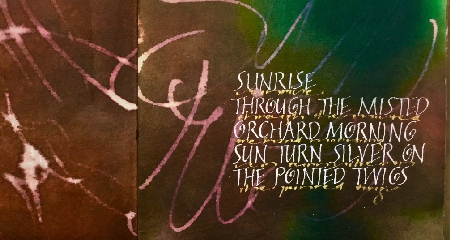 SUNRISE
THROUGH THE MISTED
ORCHARD MORNING
SUN TURN SILVER ON
THE POINTED TWIGS